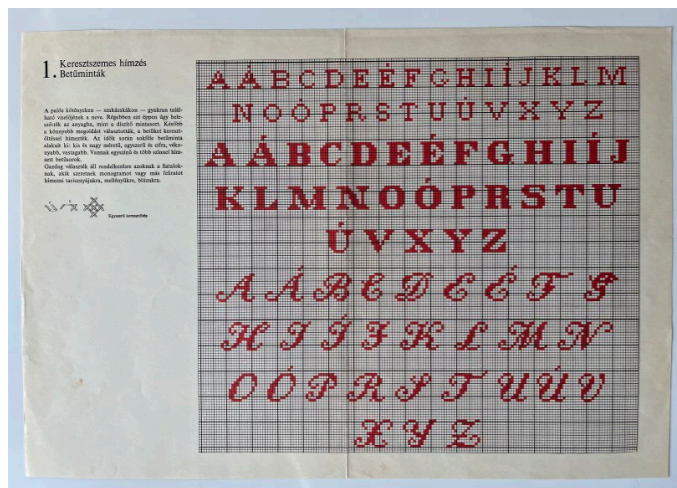 1. Keresztszemes hímzés
Betűminták
A palóc kötényeken — szakácskákon — gyakran talál-
ható viselőjének a neve. Régebben ezt éppen úgy bele-
szőtték az anyagba, mint a díszítő mintasort. Később
a könnyebb megoldást választották, a betűket kereszt-
öltéssel hímezték. Az idők során sokféle betűminta
alakult ki: kis és nagy méretű, egyszerű és cifra, véko-
nyabb, vastagabb. Vannak egyszínű és több színnel hím-
zett betűsorok.
Gazdag választék áll rendelkezésre azoknak a fiatalok-
nak, akik szeretnek monogramot vagy más feliratot
hímezni tarisznyájukra, mellényükre, blúzukra.
Egyszerű keresztöltés
A Á B C D E É F G H I Í J K L M
N O Ó P R S T U Ú V X Y Z
A Á B C D E É F G H I Í J
K L M N O Ó P R S T U
Ú V X Y Z
A Á B C D E É F G
H I Í J K L M N
O Ó P R S T U Ú V
X Y Z